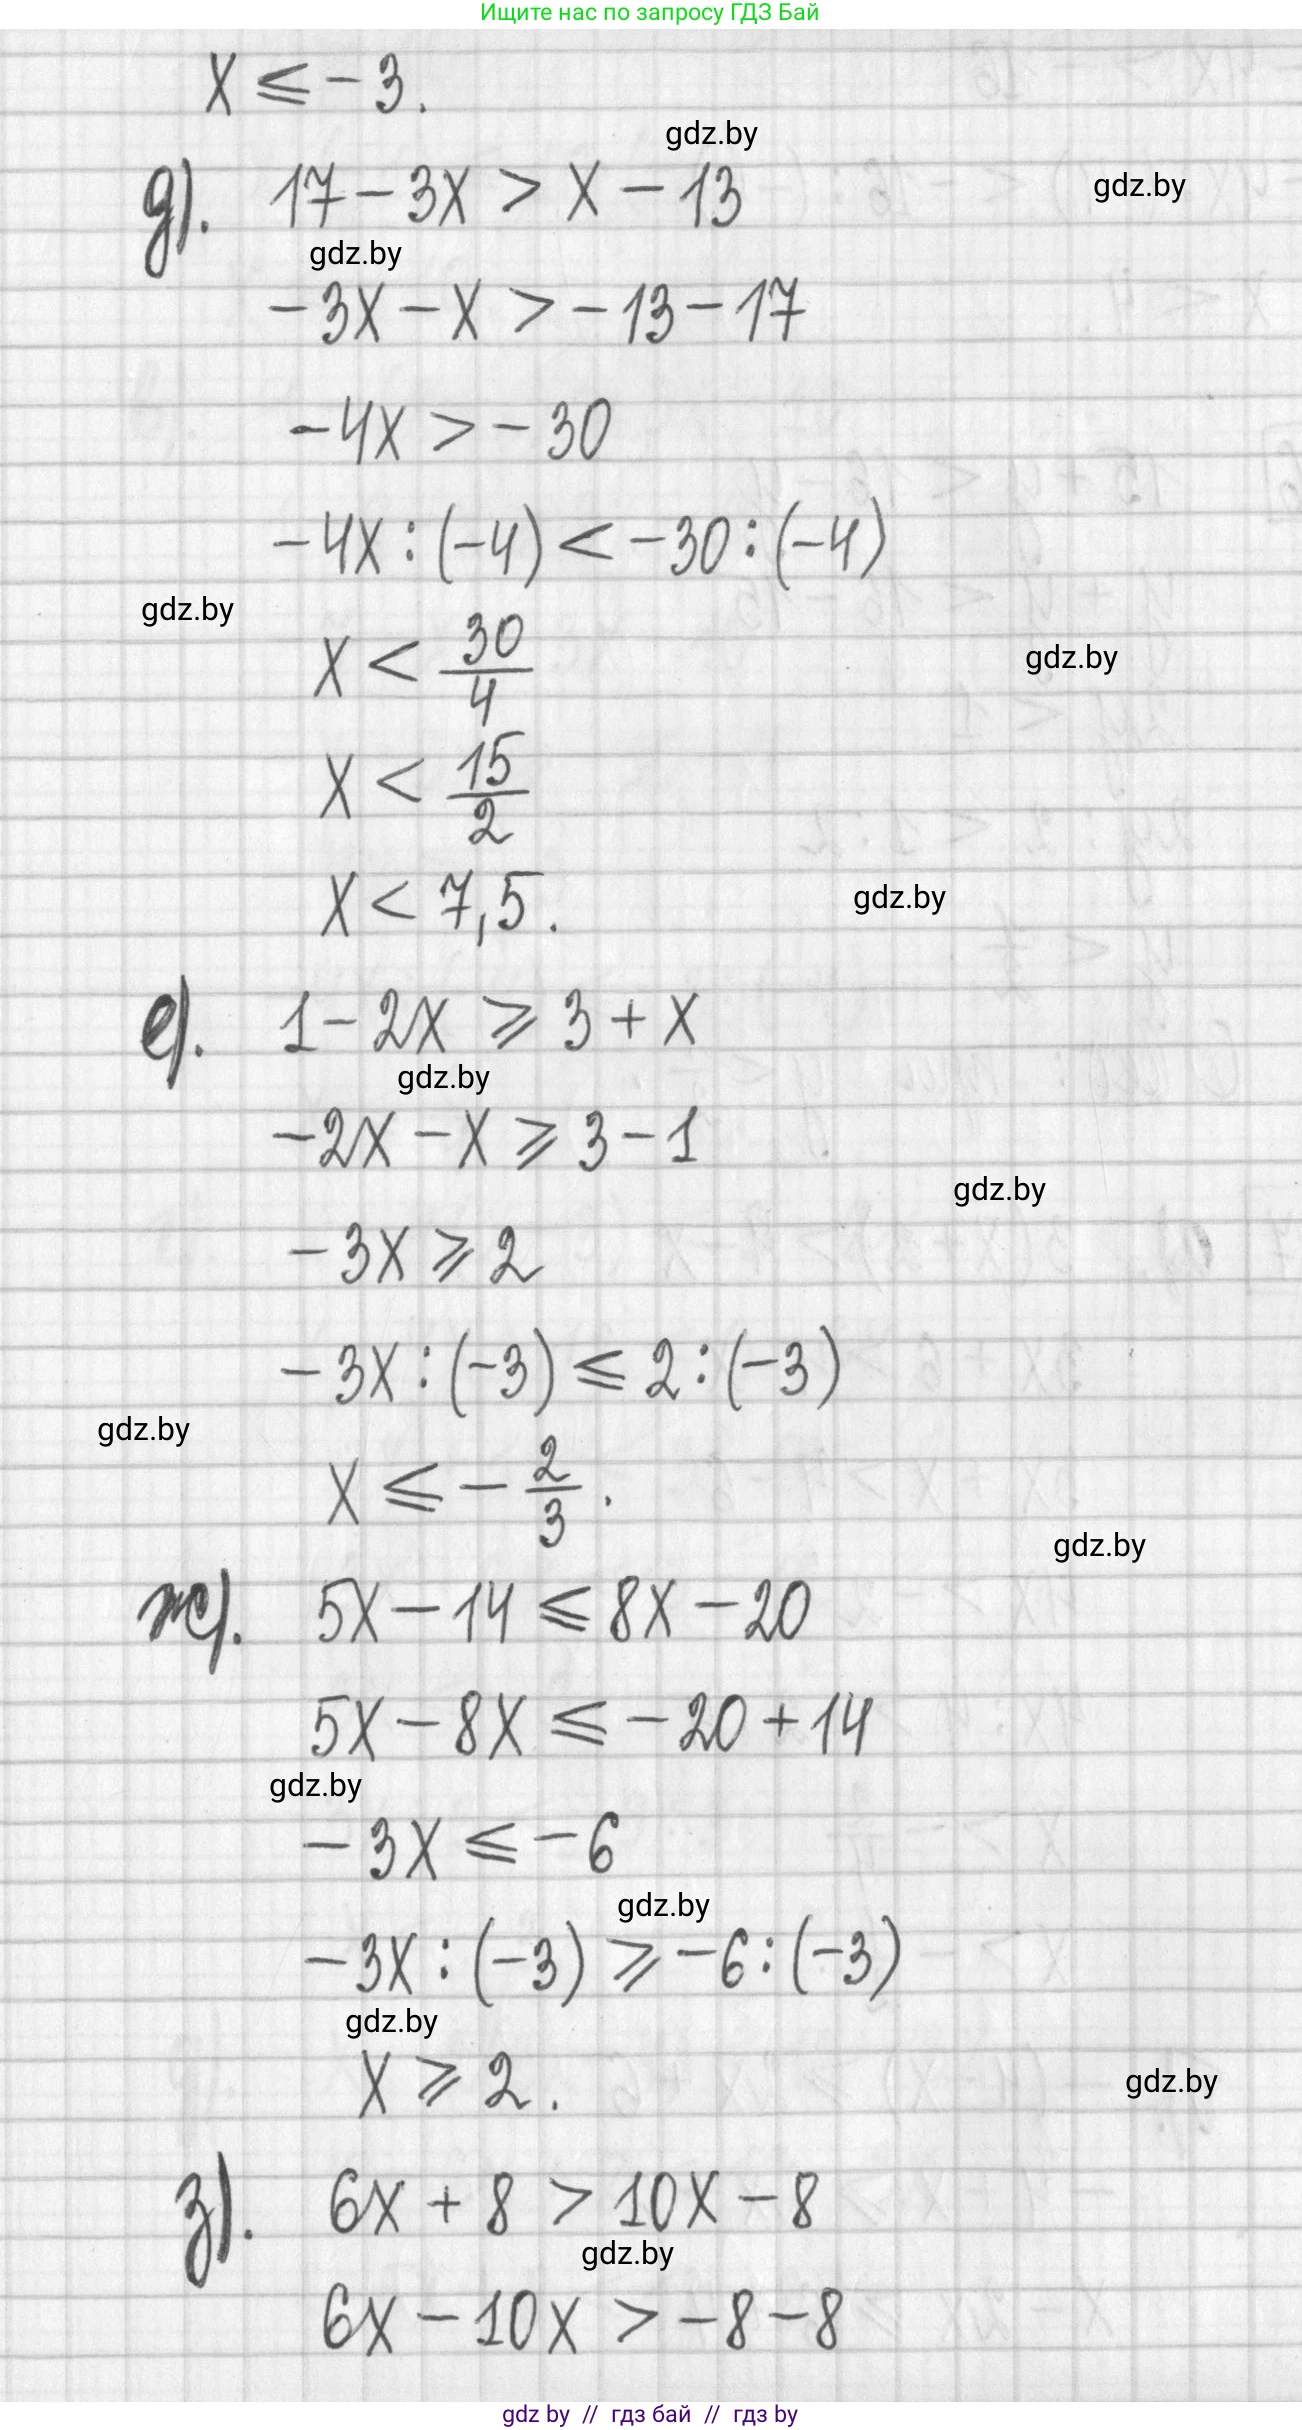 Ищите нас по запросу ГДЗ Бай
x ⩽ -3.
gdz.by
д). 17 - 3x > x - 13
gdz.by
gdz.by
-3x - x > -13 - 17
-4x > -30
-4x : (-4) < -30 : (-4)
gdz.by
x < 30/4
gdz.by
x < 15/2
x < 7,5.
gdz.by
е). 1 - 2x ⩾ 3 + x
gdz.by
-2x - x ⩾ 3 - 1
gdz.by
-3x ⩾ 2
-3x : (-3) ⩽ 2 : (-3)
gdz.by
x ⩽ -2/3.
gdz.by
ж). 5x - 14 ⩽ 8x - 20
5x - 8x ⩽ -20 + 14
gdz.by
-3x ⩽ -6
gdz.by
-3x : (-3) ⩾ -6 : (-3)
gdz.by
x ⩾ 2.
gdz.by
з). 6x + 8 > 10x - 8
gdz.by
6x - 10x > -8 - 8
gdz by // гдз бай // гдз by